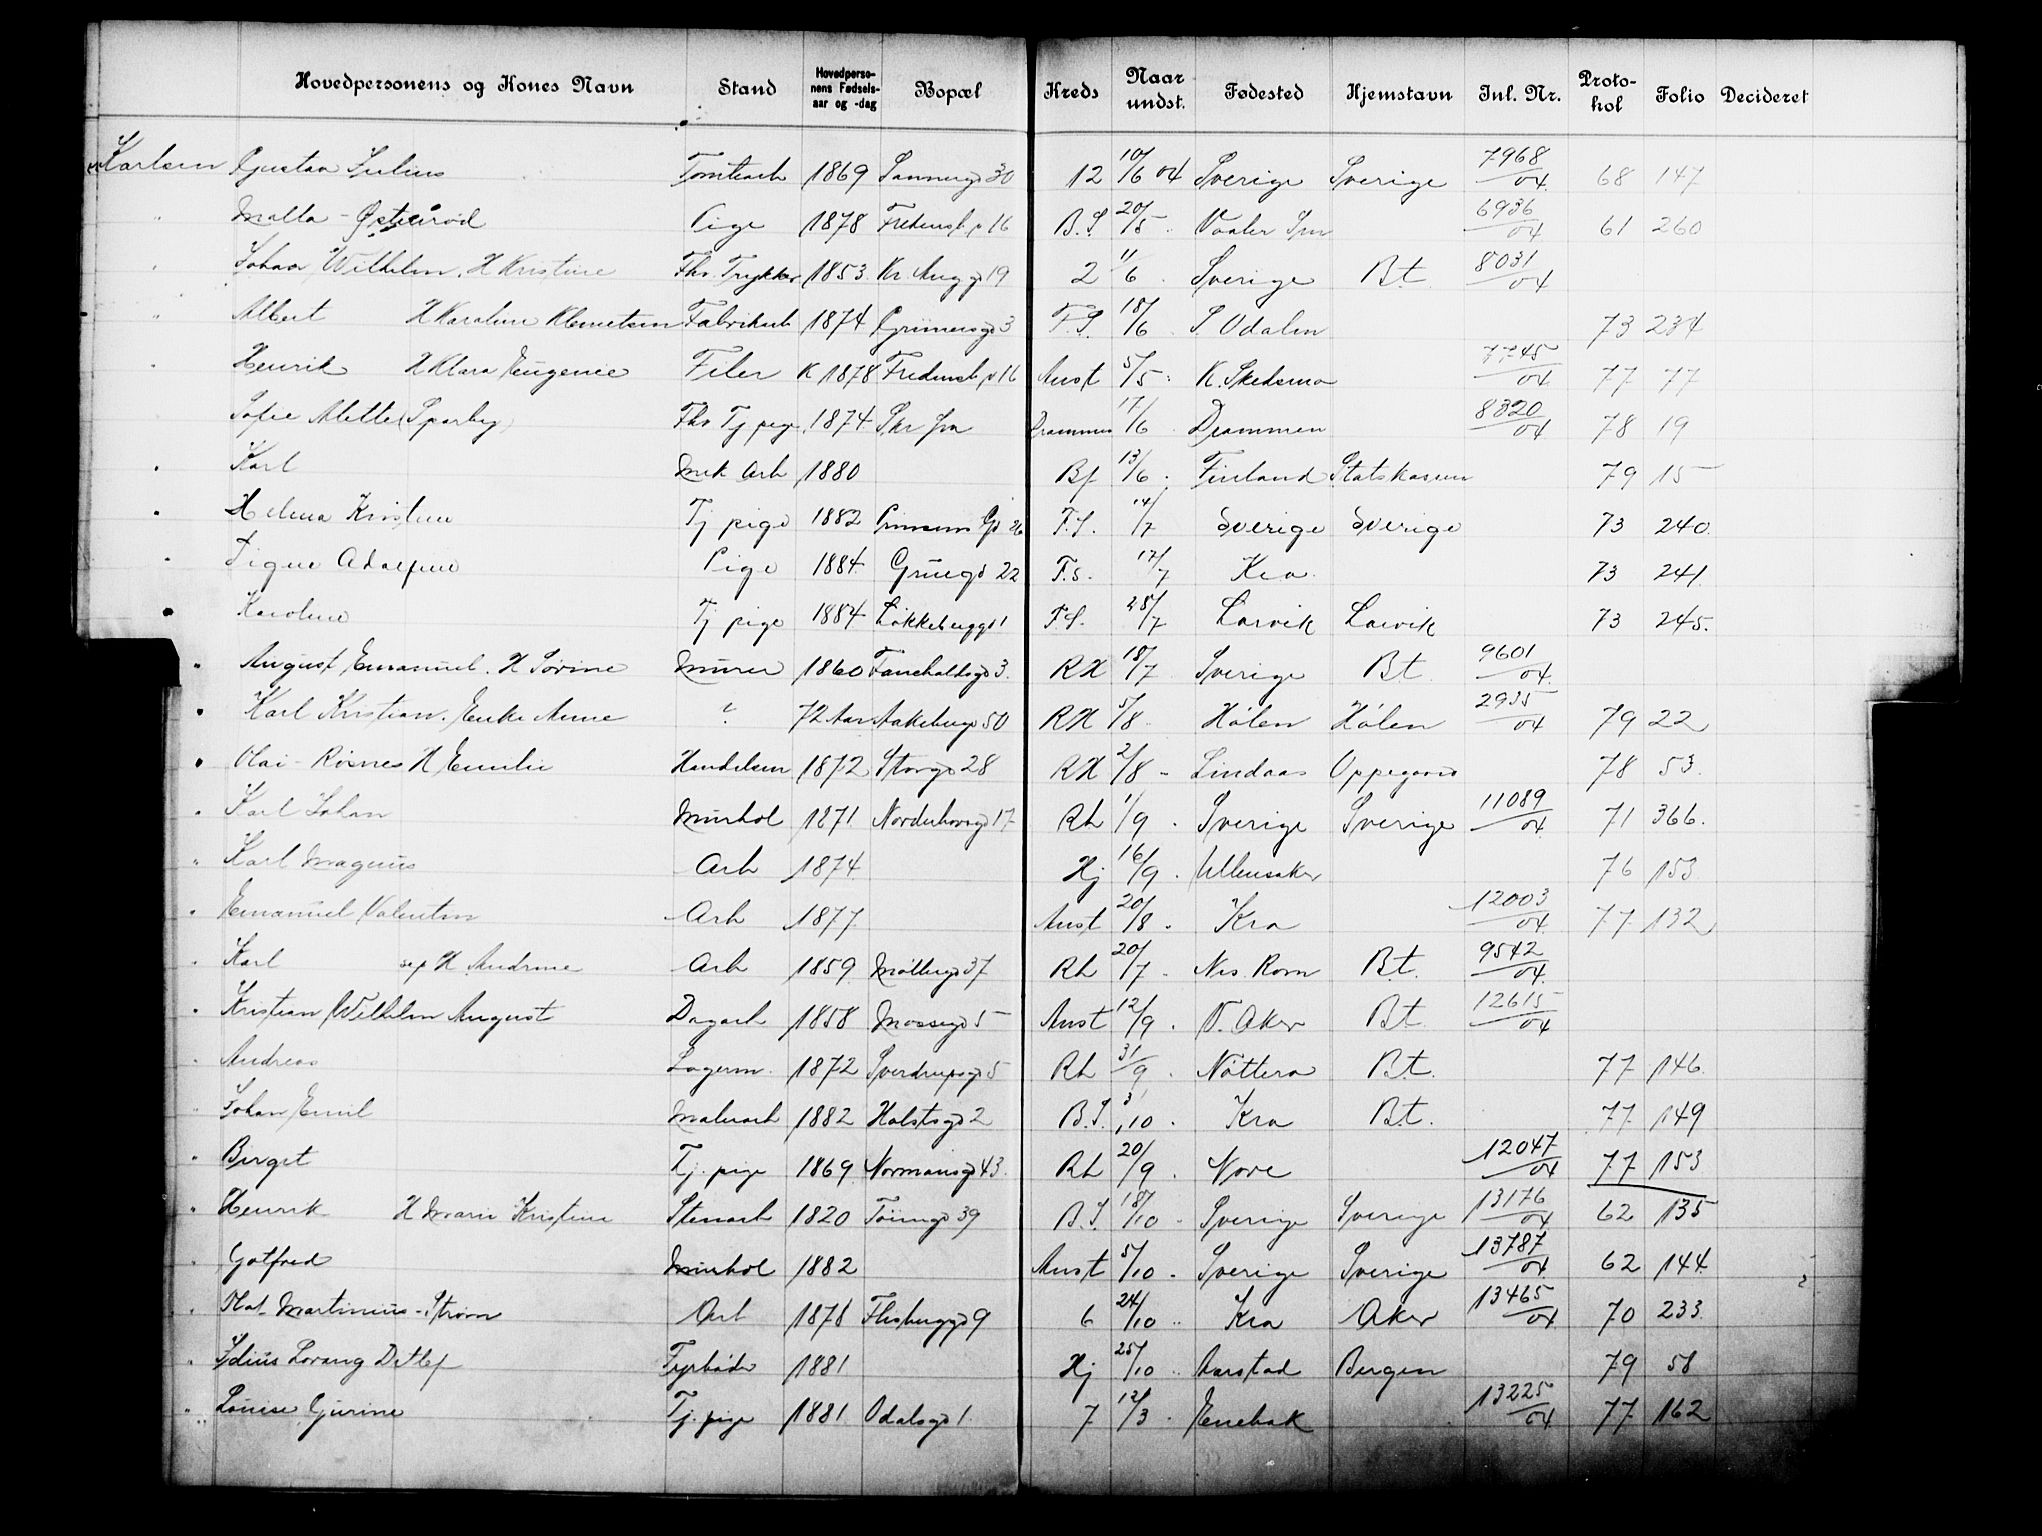 Hovedpersonens og Kones Navn Stand Hovedpersonens Fødselsaar og -dag Bopæl Kreds Naar undst. Fødested Hjemstavn Inl. Nr. Protokol Folio Decideret
Karlsen Gustav Julius Tomtearb 1869 Sannergd 30 12 10/6 04 Sverige Sverige 7968/04 68 147
" Malla - Østerød Pige 1878 Fredensb. v 16 B.S. 20/5 Vaaler Sm 6936/04 61 260
" Johan Wilhelm, H Kristine Fhv. Trykker 1853 Kr. Aug gd 19 2 11/6 Sverige Bt. 8031/04
" Albert H Karoline Klemetsen Fabrikarb 1874 Grünersgd 3 F.S. 18/6 S. Odalen 73 234
" Henrik H Klara Eugenie Filer K 1878 Fredensb. v 16 Anst 5/5 K. Skedsmo 7745/04 77 77
Sofie Alette (Sparby) Fhv Tj pige 1874 Drammen 17/6 Drammen 8320/04 78 19
" Karl Mek Arb 1880 Bf 13/6 Finland Statskassen 79 15
" Helma Kristine Tj pige 1882 Prinsens Gd 26 F.S. 14/7 Sverige Sverige 73 240.
" Signe Adolfine Pige 1884 Gruegd 22 F.s. 17/7 Kra. 73 241.
" Karoline Tj pige 1884 Løkkeberggd 1 F.S. 28/7 Larvik Larvik 73 245.
" August Emanuel. H Sørine Murer 1860 Fauchaldsgd 3. RH 18/7 Sverige Bt. 9601/04.
" Karl Kristian. Enke Anne ? 72 Aar Aakebergd 50 RH 5/8 Hølen Hølen 2935/04 79 22
" Olai - Røsnes H Emilie Handelsm 1872 Storgd 28 RH 2/8 Lindaas Oppegaard 78 53.
" Karl Johan Murhdl 1871 Norderhovsgd 17 Rh 1/9 Sverige Sverige 11089/04. 71 366.
" Karl Magnus Arb 1874 Hj 16/9 Ullensaker 76 153
" Emanuel Valentin Arb 1877. Anst 20/8 Kra 12003/04. 77 132
" Karl sep H. Andrine Arb 1859. Møllergd 37 Rh 20/7 Nes Rom Bt. 9542/04.
" Kristian Wilhelm August Dagarb 1858 Mossegd 5 Anst 12/9 V. Aker Bt. 12615/04
" Andreas Lagerm. 1872 Sverdrupsgd 5 Rh 31/9 Nøtterø Bt. 77 146.
" Johan Emil Malerarb 1882 Holstsgd 2 B.S. 3/10 Kra Bt. 77 149
" Birget Tj. pige 1869. Normansgd 43. Rh 20/9 Nore 12047/04 77 153
" Henrik H Marie Kristine Stenarb 1820 Tøiengd 39 B.S. 18/10 Sverige Sverige 13176/04 62 135
" Gotfred Murhdl 1882 Anst 5/10 Sverige Sverige 13787/04 62 144.
" Olaf Martinius - Strøm Arb 1878 Flisberggd 9 6 24/10 Kra Aker 13465/04 70 233.
" Julius Lorang Detlef Fyrbøder 1881 Hj 25/10 Aarstad Bergen 79 58
" Louise Gurine Tj. pige 1881. Odalsgd 1. 7 12/3 Enebak 13225/04 77 162